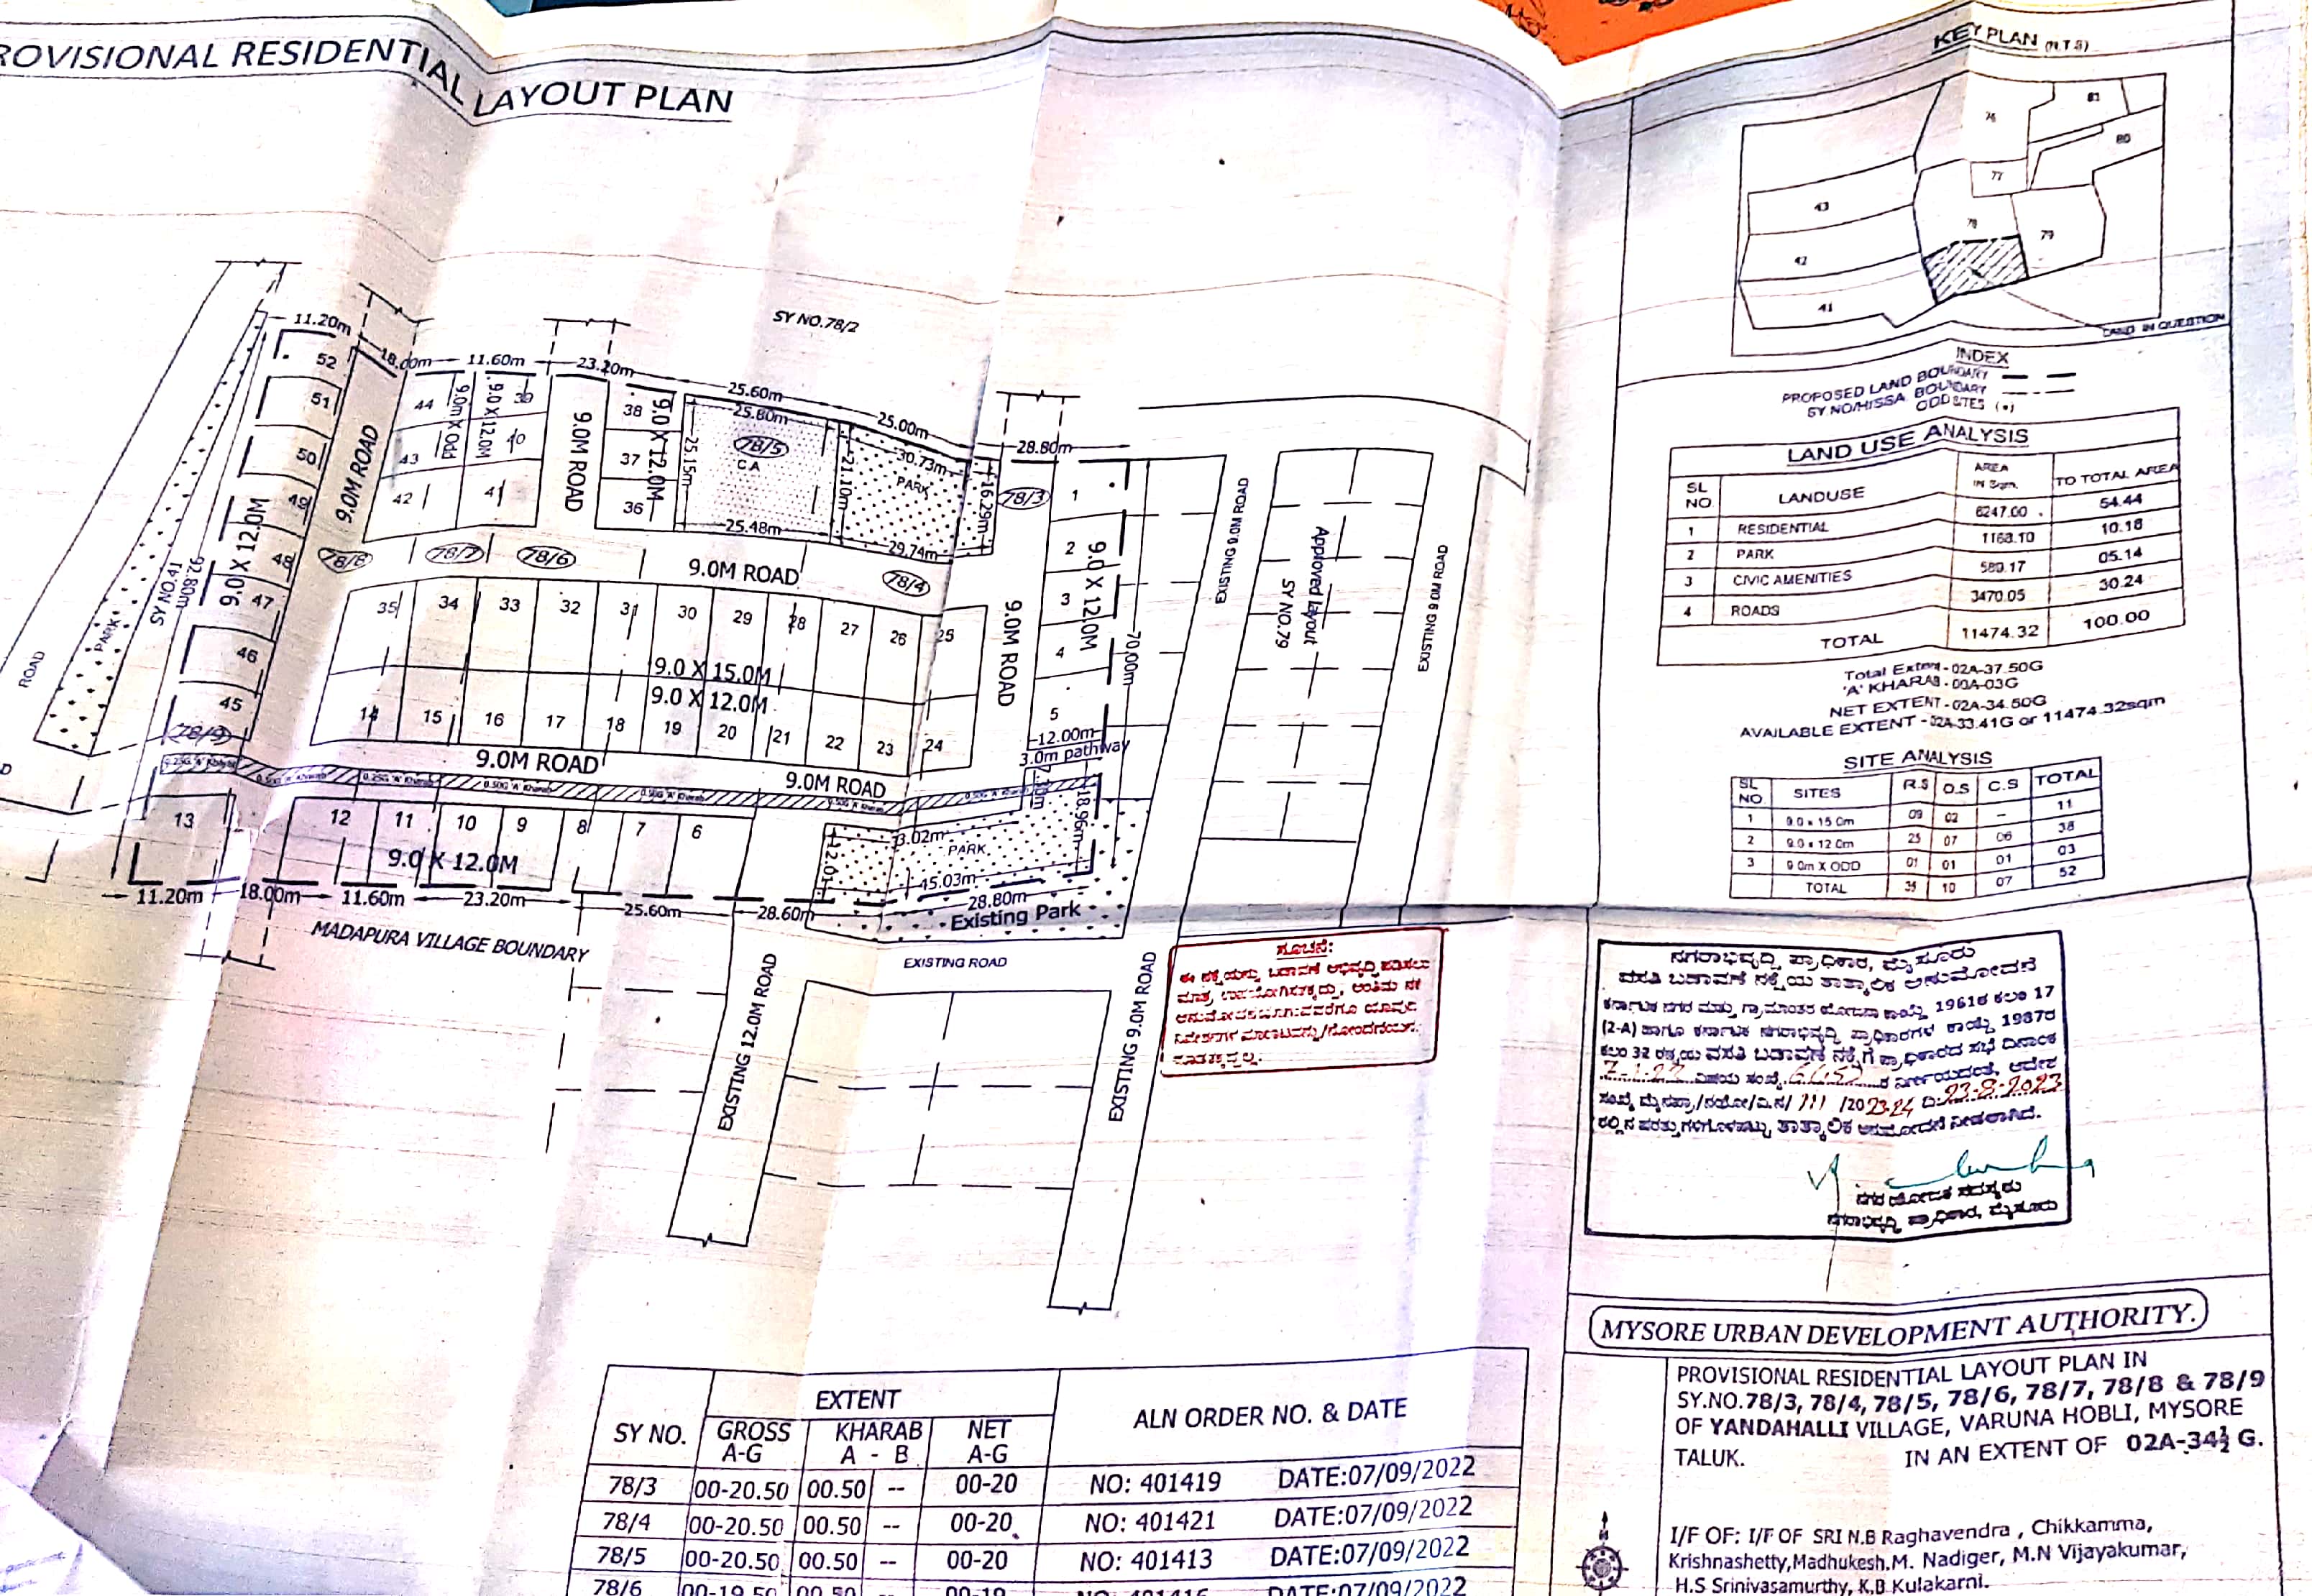 ROVISIONAL RESIDENTIAL LAYOUT PLAN
SY NO.78/2
11.20m
18.00m
11.60m
23.20m
25.60m
25.00m
28.80m
52
51
50
49
48
47
46
45
9.0 X 12.0M
9.0M ROAD
ROAD
PARK
SY NO.41
92.80m
44
43
42
9.0m X Odd
39
40
41
9.0 X 12.0M
9.0M ROAD
38
37
36
9.0 X 12.0M
25.80m
25.15m
78/5
C A
25.48m
21.10m
30.73m
PARK
16.29m
29.74m
78/3
78/8
78/7
78/6
9.0M ROAD
78/4
78/9
35
34
33
32
31
30
29
28
27
26
25
9.0 X 15.0M
9.0 X 12.0M
14
15
16
17
18
19
20
21
22
23
24
9.0M ROAD
9.0M ROAD
9.0M ROAD
1
2
3
4
5
9.0 X 12.0M
70.00m
12.00m
3.0m pathway
18.96m
13
12
11
10
9
8
7
6
9.0 X 12.0M
3.02m
PARK
12.01
45.03m
28.80m
Existing Park
11.20m
18.00m
11.60m
23.20m
25.60m
28.60m
MADAPURA VILLAGE BOUNDARY
EXISTING ROAD
EXISTING 12.0M ROAD
EXISTING 9.0M ROAD
EXISTING 9.0M ROAD
Approved layout
SY NO.79
EXISTING 9.0M ROAD
KEY PLAN (N.T.S)
76
81
80
77
43
78
79
42
41
LAND IN QUESTION
INDEX
PROPOSED LAND BOUNDARY
SY NO/HISSA BOUNDARY
ODD SITES (•)
LAND USE ANALYSIS
SL NO LANDUSE AREA IN Sqm. TO TOTAL AREA
1 RESIDENTIAL 6247.00 54.44
2 PARK 1168.10 10.18
3 CIVIC AMENITIES 589.17 05.14
4 ROADS 3470.05 30.24
TOTAL 11474.32 100.00
Total Extent - 02A-37.50G
'A' KHARAB - 00A-03G
NET EXTENT - 02A-34.50G
AVAILABLE EXTENT - 02A-33.41G or 11474.32sqm
SITE ANALYSIS
SL NO. SITES R.S O.S C.S TOTAL
1 9.0 x 15.0m 09 02 – 11
2 9.0 x 12.0m 25 07 06 38
3 9.0m X ODD 01 01 01 03
TOTAL 35 10 07 52
ಸೂಚನೆ:
ಈ ನಕ್ಷೆಯನ್ನು ಬಡಾವಣೆ ಅಭಿವೃದ್ಧಿ ಪಡಿಸಲು
ನಗರಾಭಿವೃದ್ಧಿ ಪ್ರಾಧಿಕಾರ, ಮೈಸೂರು
ವಸತಿ ಬಡಾವಣೆ ನಕ್ಷೆಯ ತಾತ್ಕಾಲಿಕ ಅನುಮೋದನೆ
ಕರ್ನಾಟಕ ನಗರ ಮತ್ತು ಗ್ರಾಮಾಂತರ ಯೋಜನಾ ಕಾಯ್ದೆ 1961ರ ಕಲಂ 17
(2-A) ಹಾಗೂ ಕರ್ನಾಟಕ ನಗರಾಭಿವೃದ್ಧಿ ಪ್ರಾಧಿಕಾರಗಳ ಕಾಯ್ದೆ 1987ರ
ಕಲಂ 32 ರನ್ವಯ ವಸತಿ ಬಡಾವಣೆ ನಕ್ಷೆಗೆ ಪ್ರಾಧಿಕಾರದ ಸಭೆ ದಿನಾಂಕ
ವಿಷಯ ಸಂಖ್ಯೆ ರ ನಿರ್ಣಯದಂತೆ, ಆದೇಶ
ಸಂಖ್ಯೆ ಮೈನಪ್ರಾ/ನಯೋ/ವಿ.ನ/ 111 /2023-24 ದಿ: 23-8-2023
ರಲ್ಲಿನ ಷರತ್ತುಗಳಿಗೊಳಪಟ್ಟು ತಾತ್ಕಾಲಿಕ ಅನುಮೋದನೆ ನೀಡಲಾಗಿದೆ.
ನಗರ ಯೋಜಕ ಸದಸ್ಯರು
ನಗರಾಭಿವೃದ್ಧಿ ಪ್ರಾಧಿಕಾರ, ಮೈಸೂರು
MYSORE URBAN DEVELOPMENT AUTHORITY.
PROVISIONAL RESIDENTIAL LAYOUT PLAN IN
SY.NO.78/3, 78/4, 78/5, 78/6, 78/7, 78/8 & 78/9
OF YANDAHALLI VILLAGE, VARUNA HOBLI, MYSORE
TALUK. IN AN EXTENT OF 02A-34½ G.
I/F OF: I/F OF SRI N.B Raghavendra , Chikkamma,
Krishnashetty,Madhukesh.M. Nadiger, M.N Vijayakumar,
H.S Srinivasamurthy, K.B Kulakarni.
N
SY NO. EXTENT ALN ORDER NO. & DATE
GROSS A-G KHARAB A - B NET A-G
78/3 00-20.50 00.50 -- 00-20 NO: 401419 DATE:07/09/2022
78/4 00-20.50 00.50 -- 00-20 NO: 401421 DATE:07/09/2022
78/5 00-20.50 00.50 -- 00-20 NO: 401413 DATE:07/09/2022
78/6 00-19.50 00.50 -- 00-19 NO: 401416 DATE:07/09/2022